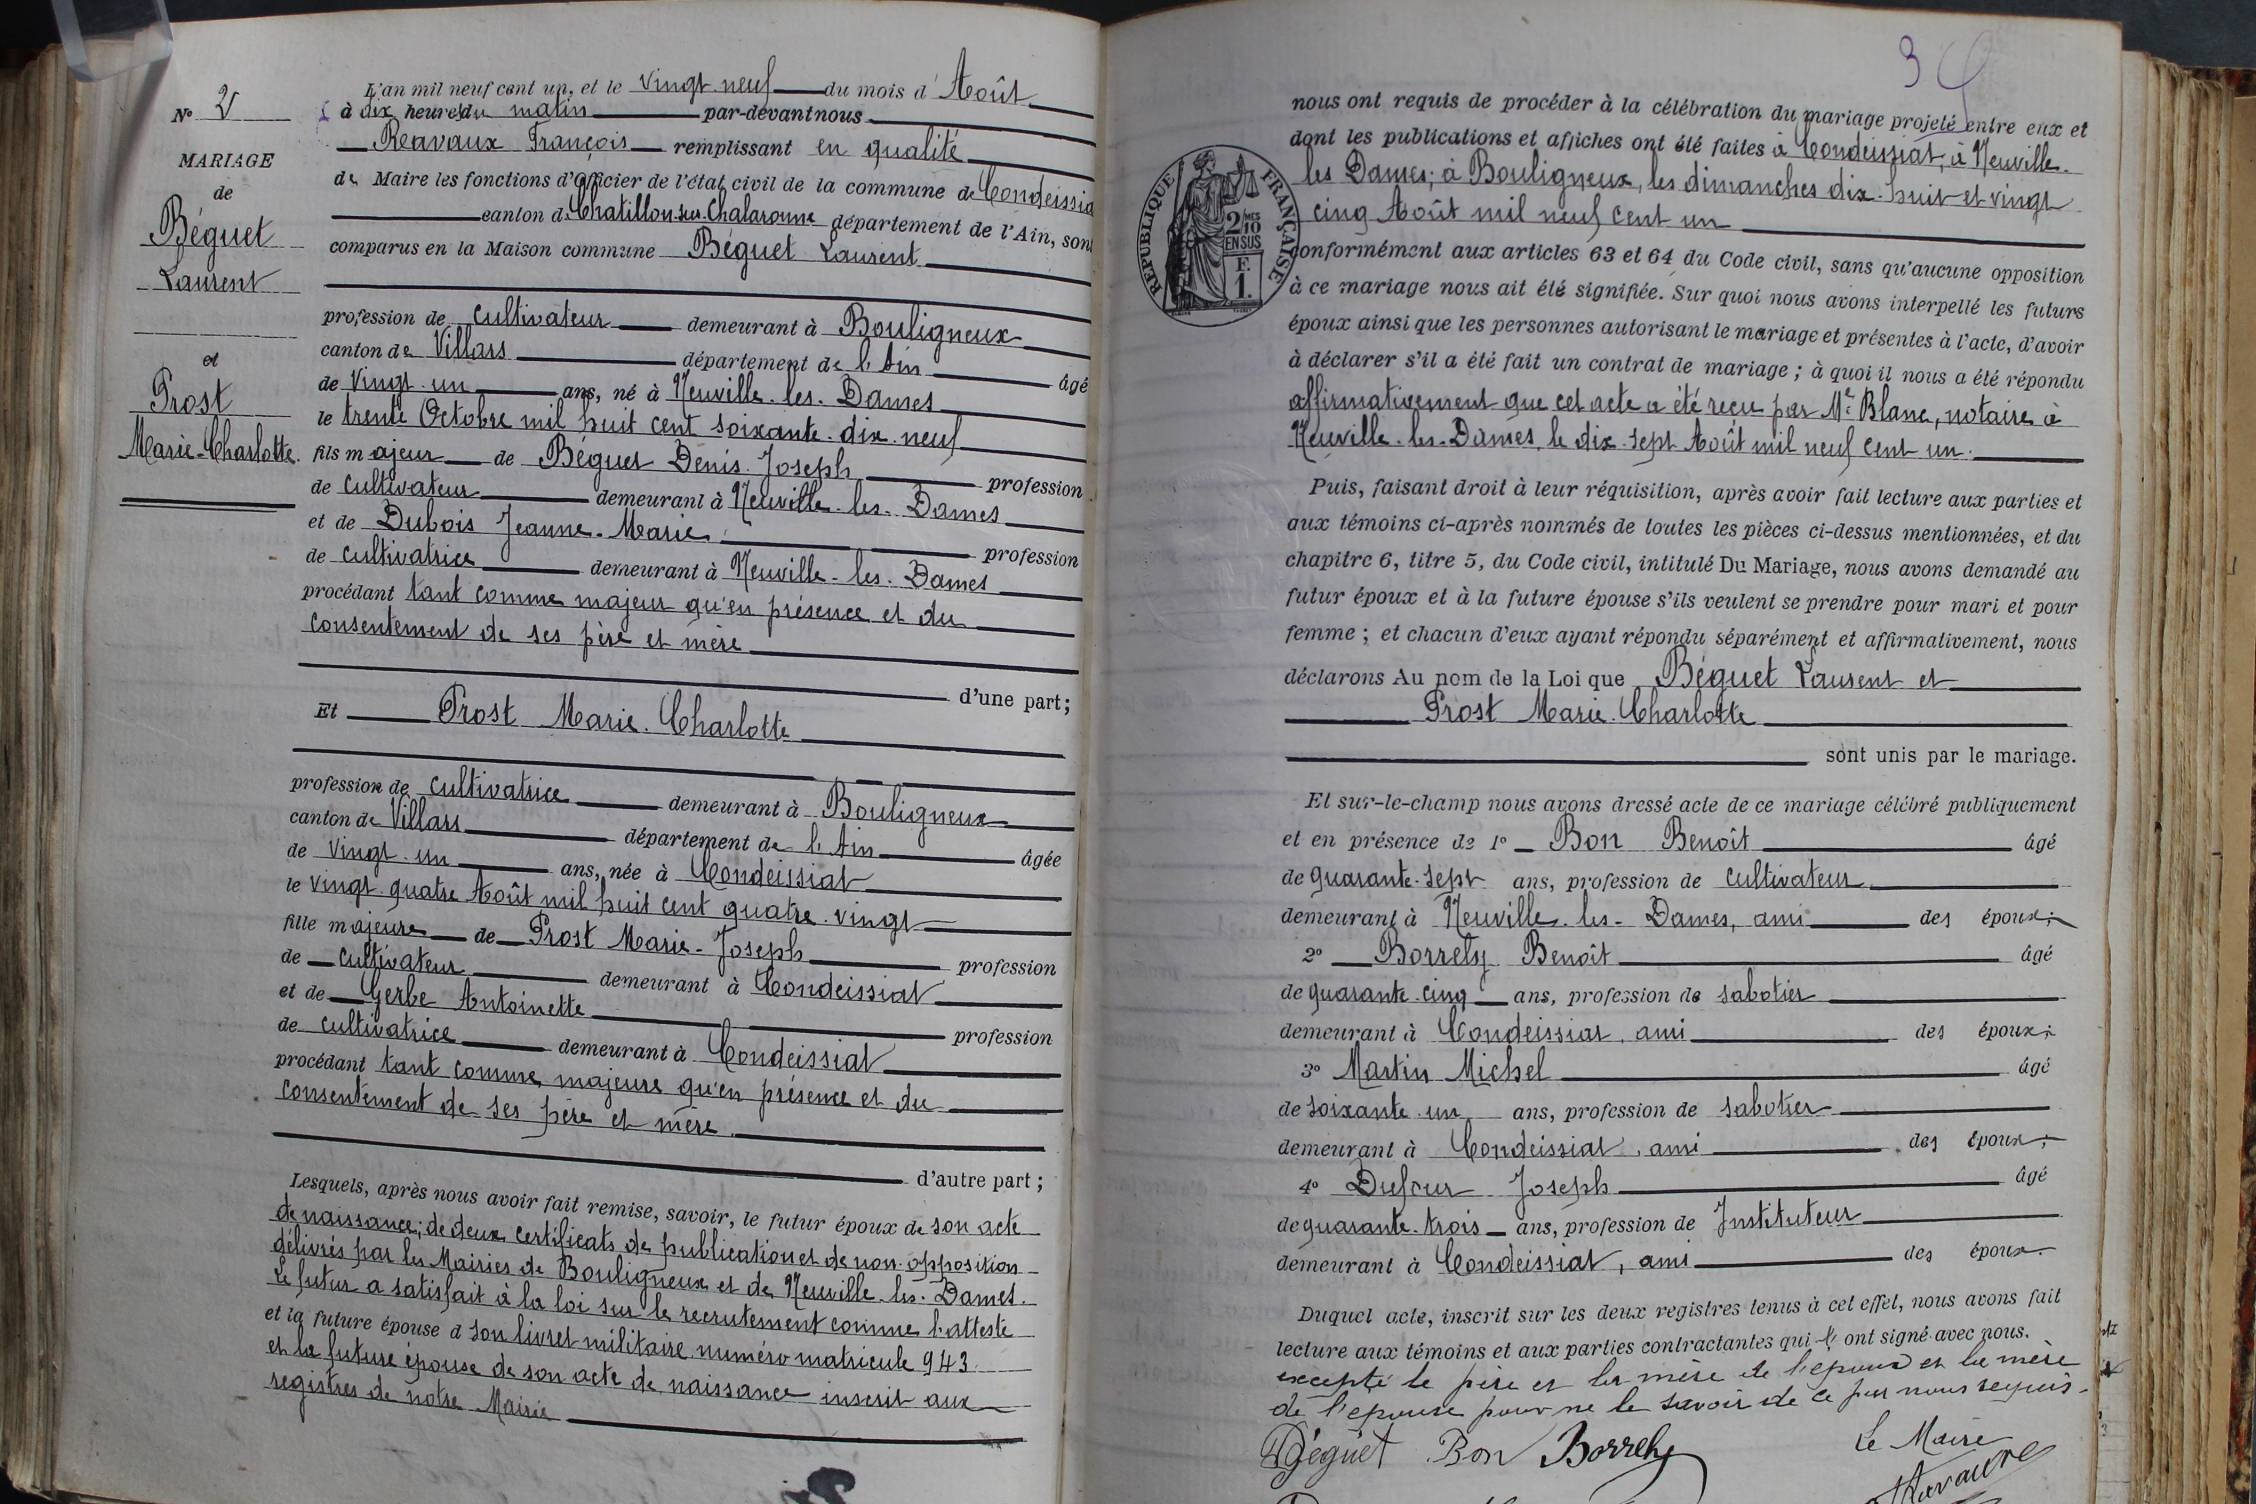 N° 2
MARIAGE
de
Béguet
Laurent
et
Prost
Marie-Charlotte.
L'an mil neuf cent un, et le vingt-neuf du mois d'Août
à dix heures du matin par-devant nous
Reavaux François remplissant en qualité
de Maire les fonctions d'Officier de l'état civil de la commune de Condeissia
canton de Chatillon-sur-Chalaronne département de l'Ain, sont
comparus en la Maison commune Béguet Laurent
profession de cultivateur demeurant à Bouligneux
canton de Villars département de l'Ain âgé
de vingt-un ans, né à Neuville-les-Dames
le trente Octobre mil huit cent soixante-dix-neuf
fils majeur de Béguet Denis-Joseph profession
de cultivateur demeurant à Neuville-les-Dames
et de Dubois Jeanne-Marie profession
de cultivatrice demeurant à Neuville-les-Dames
procédant tant comme majeur qu'en présence et du
consentement de ses père et mère
d'une part;
Et Prost Marie-Charlotte
profession de cultivatrice demeurant à Bouligneux
canton de Villars département de l'Ain âgée
de vingt-un ans, née à Condeissiat
le vingt-quatre Août mil huit cent quatre-vingt
fille majeure de Prost Marie-Joseph profession
de cultivateur demeurant à Condeissiat
et de Gerbe Antoinette profession
de cultivatrice demeurant à Condeissiat
procédant tant comme majeure qu'en présence et du
consentement de ses père et mère.
d'autre part;
Lesquels, après nous avoir fait remise, savoir, le futur époux de son acte
de naissance; de deux certificats de publication et de non-opposition
délivrés par les Mairies de Bouligneux et de Neuville-les-Dames.
Le futur a satisfait à la loi sur le recrutement comme l'atteste
et la future épouse d son livret militaire numéro matricule 943
et la future épouse de son acte de naissance inscrit aux
registres de notre Mairie
3
nous ont requis de procéder à la célébration du mariage projeté entre eux et
dont les publications et affiches ont été faites à Condeissiat, à Neuville-
les Dames; à Bouligneux, les dimanches dix-huit et vingt
cinq Août mil neuf cent un
REPUBLIQUE FRANÇAISE
2 MES
10
EN SUS
F.
1.
conformément aux articles 63 et 64 du Code civil, sans qu'aucune opposition
à ce mariage nous ait été signifiée. Sur quoi nous avons interpellé les futurs
époux ainsi que les personnes autorisant le mariage et présentes à l'acte, d'avoir
à déclarer s'il a été fait un contrat de mariage; à quoi il nous a été répondu
affirmativement que cet acte a été reçu par Me Blanc, notaire à
Neuville-les-Dames, le dix-sept Août mil neuf cent un.
Puis, faisant droit à leur réquisition, après avoir fait lecture aux parties et
aux témoins ci-après nommés de toutes les pièces ci-dessus mentionnées, et du
chapitre 6, titre 5, du Code civil, intitulé Du Mariage, nous avons demandé au
futur époux et à la future épouse s'ils veulent se prendre pour mari et pour
femme; et chacun d'eux ayant répondu séparément et affirmativement, nous
déclarons Au nom de la Loi que Béguet Laurent et
Prost Marie-Charlotte
sont unis par le mariage.
Et sur-le-champ nous avons dressé acte de ce mariage célébré publiquement
et en présence de 1° Bon Benoît âgé
de quarante-sept ans, profession de cultivateur
demeurant à Neuville-les-Dames, ami des époux;
2° Borrety Benoît âgé
de quarante-cinq ans, profession de sabotier
demeurant à Condeissiat, ami des époux;
3° Martin Michel âgé
de soixante-un ans, profession de sabotier
demeurant à Condeissiat, ami des époux;
4° Dufour Joseph âgé
de quarante-trois ans, profession de Instituteur
demeurant à Condeissiat, ami des époux.
Duquel acte, inscrit sur les deux registres tenus à cet effet, nous avons fait
lecture aux témoins et aux parties contractantes qui l' ont signé avec nous.
excepté le père et la mère de l'époux et la mère
de l'épouse pour ne le savoir de ce par nous requis.
Béguet Bon Borrety
Le Maire